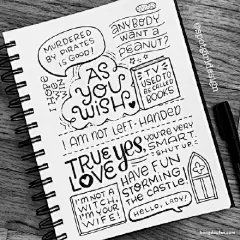 MURDERED
BY PIRATES
IS GOOD!
ANYBODY
WANT A
PEANUT?
I HOPE
WIN
AS
YOU
WISH
TV
USED TO
BE CALLED
BOOKS
I AM NOT LEFT-HANDED
TRUE
LOVE
YES,
YOU'RE VERY
SMART
SHUT UP
I'M NOT A
WITCH
I'M YOUR
WIFE!
HAVE FUN
STORMING
THE CASTLE!
HELLO, LADY!